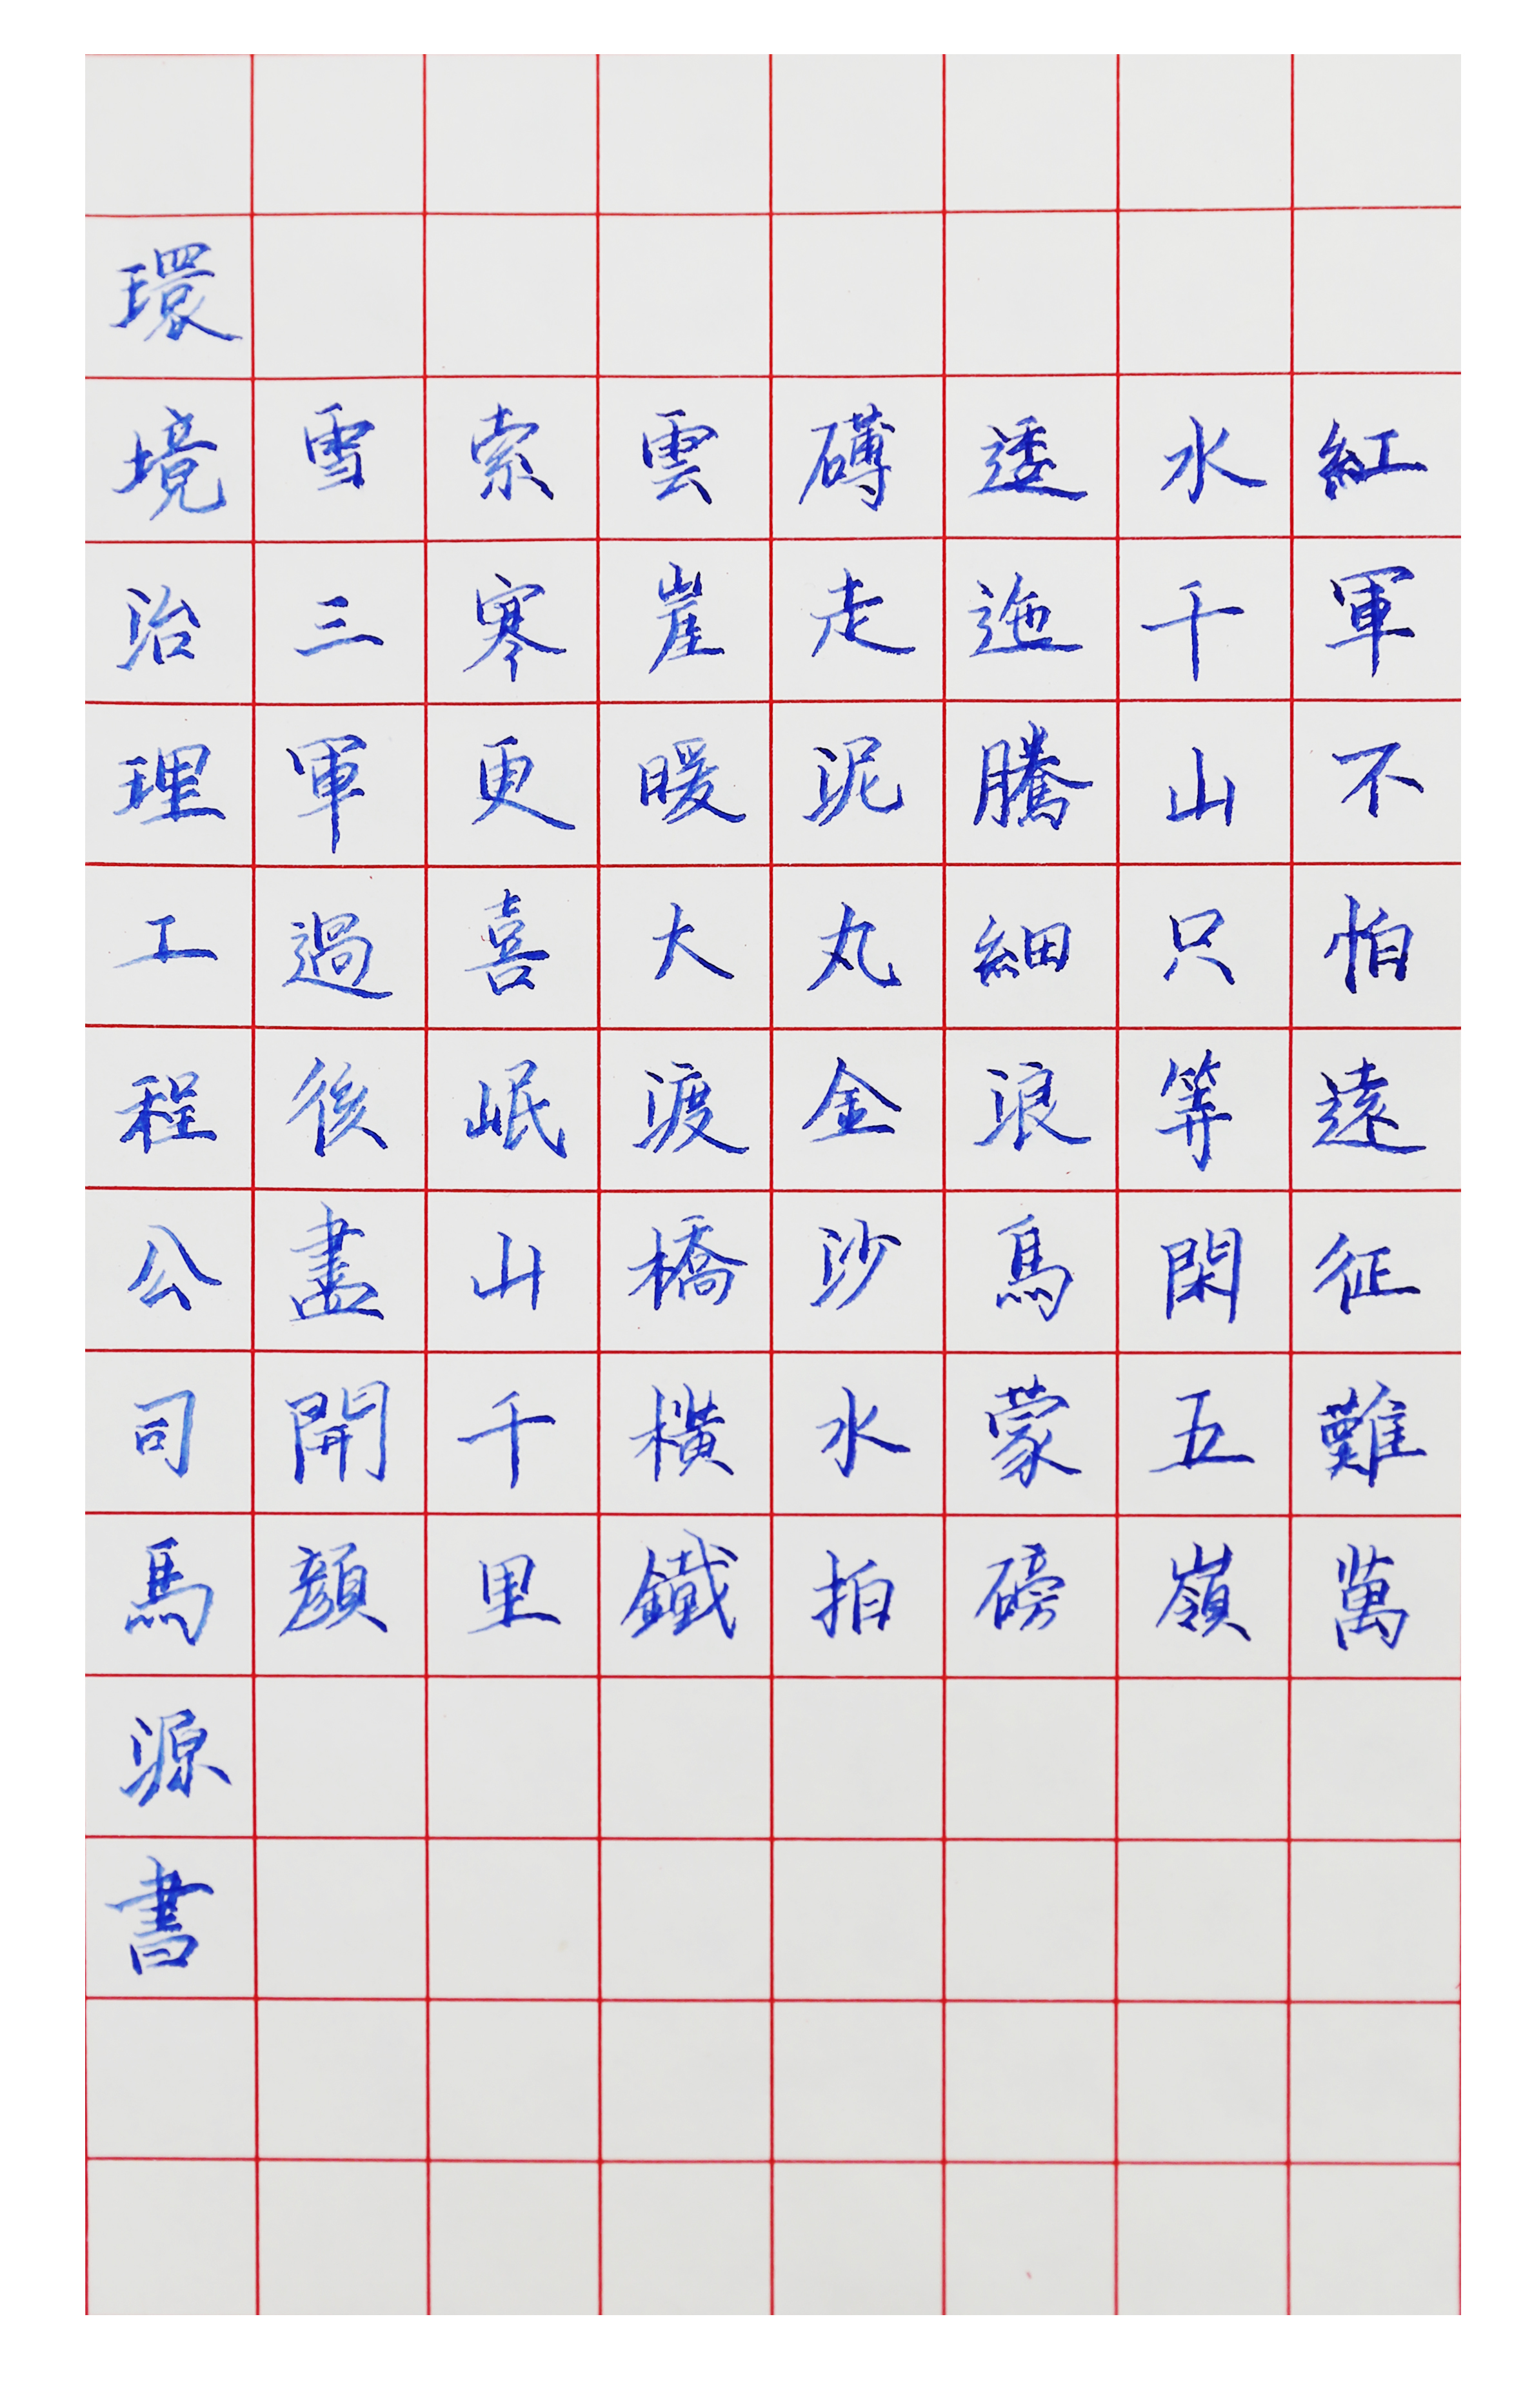 紅軍不怕遠征難萬
水千山只等閑五嶺
逶迤騰細浪烏蒙磅
礴走泥丸金沙水拍
雲崖暖大渡橋橫鐵
索寒更喜岷山千里
雪三軍過後盡開顏
環境治理工程公司馬源書